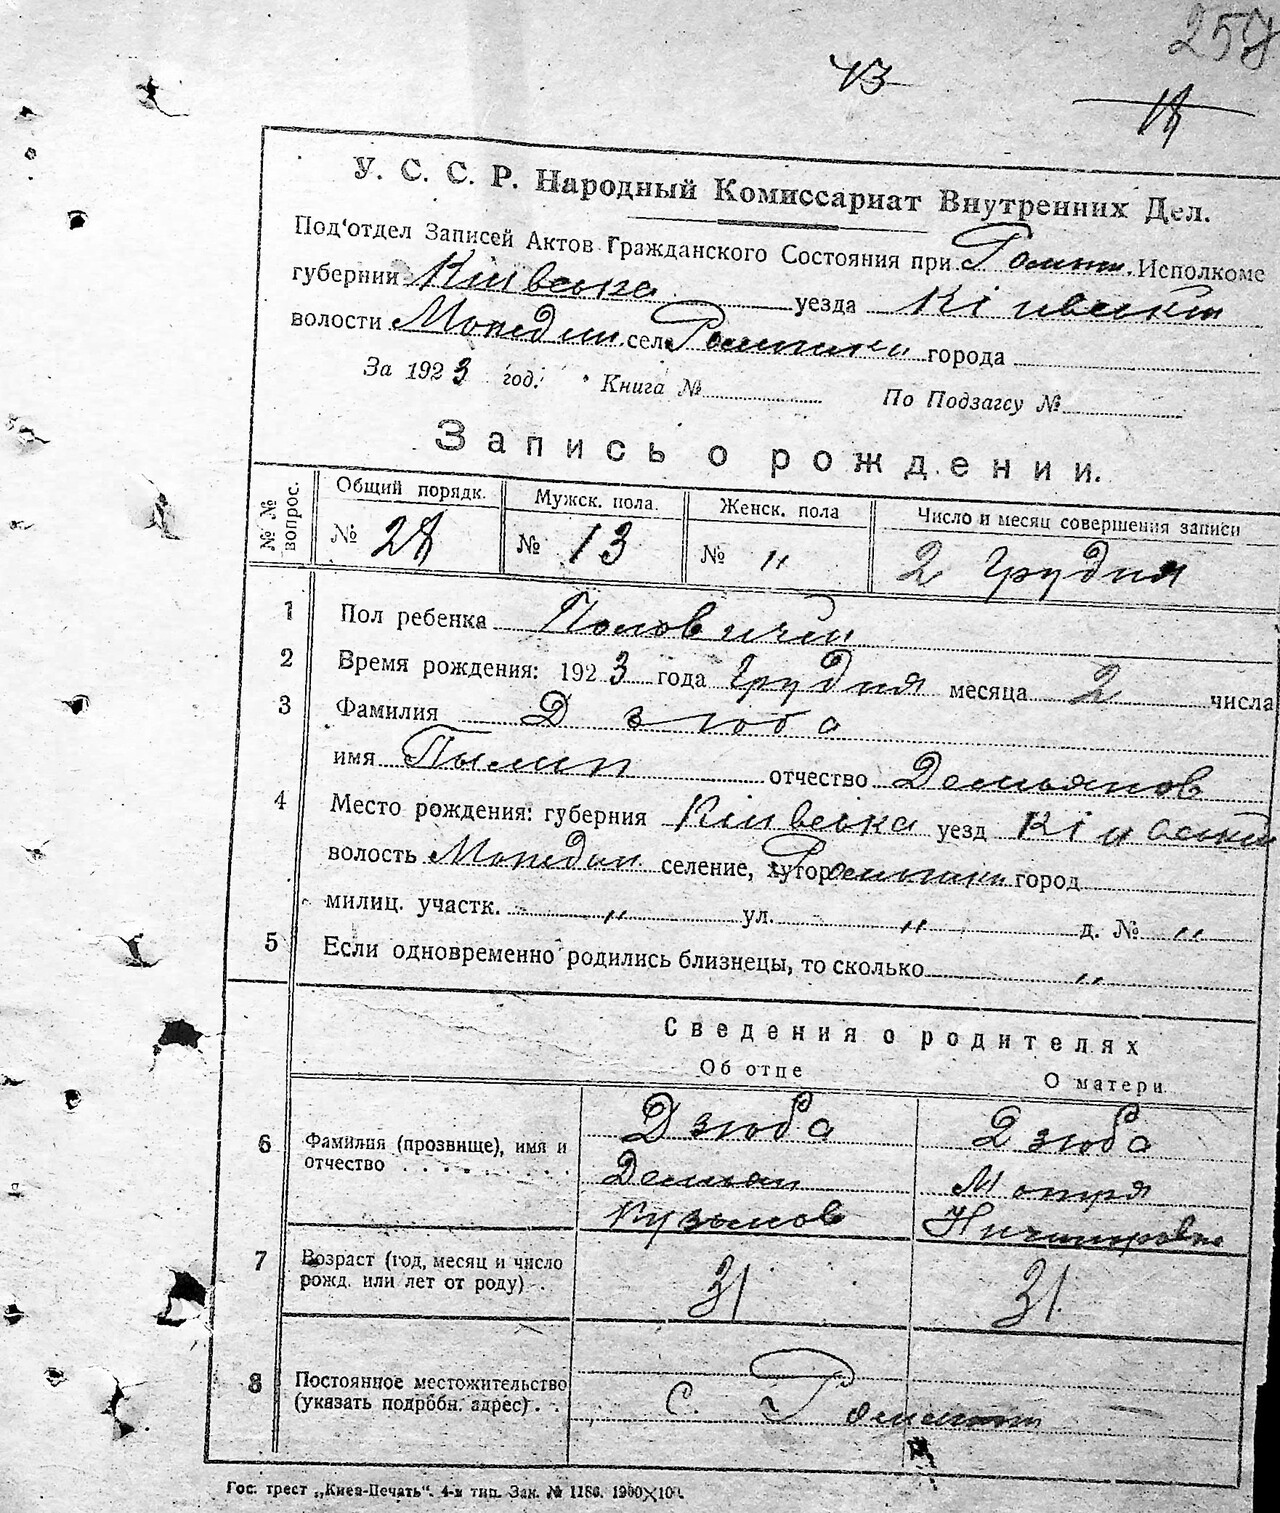 257
13
18
У. С. С. Р. Народный Комиссариат Внутренних Дел.
Под'отдел Записей Актов Гражданского Состояния при Исполкоме
губернии Київська уезда Київський
волости Мотедин. села города
За 1923 год. Книга № По Подзагсу №
Запись о рождении.
№ № вопрос. Общий порядк. Мужск. пола. Женск. пола Число и месяц совершения записи
№ 28 № 13 № " 2 Грудня
1 Пол ребенка Половичій
2 Время рождения: 1923 года Грудня месяца 2 числа
3 Фамилия Дзюба
имя Пылип отчество Демьянов
4 Место рождения: губерния Київська уезд Київський
волость селение, хутор город
милиц. участк. " ул. " д. № "
5 Если одновременно родились близнецы, то сколько "
Сведения о родителях
Об отце О матери
6 Фамилия (прозвище), имя и отчество . . . . . . . . . .
Дзюба Дзюба
Демьян Мотря
Кузьмов Ничипровна
7 Возраст (год, месяц и число рожд. или лет от роду) . .
31 31
8 Постоянное местожительство (указать подробн. адрес) . .
с.
Гос. трест „Киев-Печать". 4-я тип. Зак. № 1186. 1900×100.